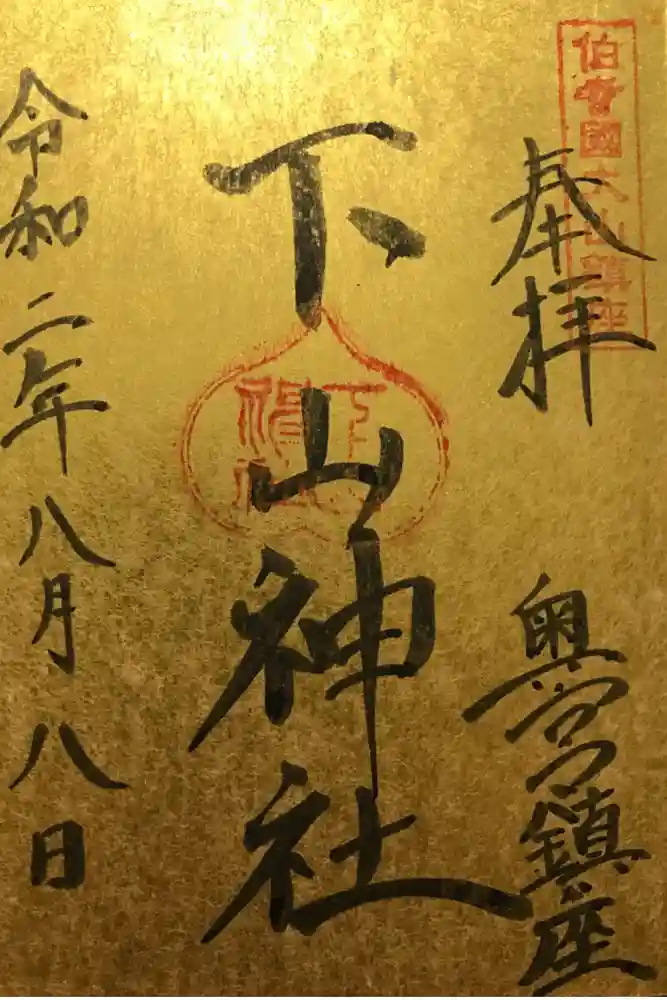 伯耆國大山鎮座
奉拝
奥宮鎮座
下山神社
下山神社
令和二年八月八日